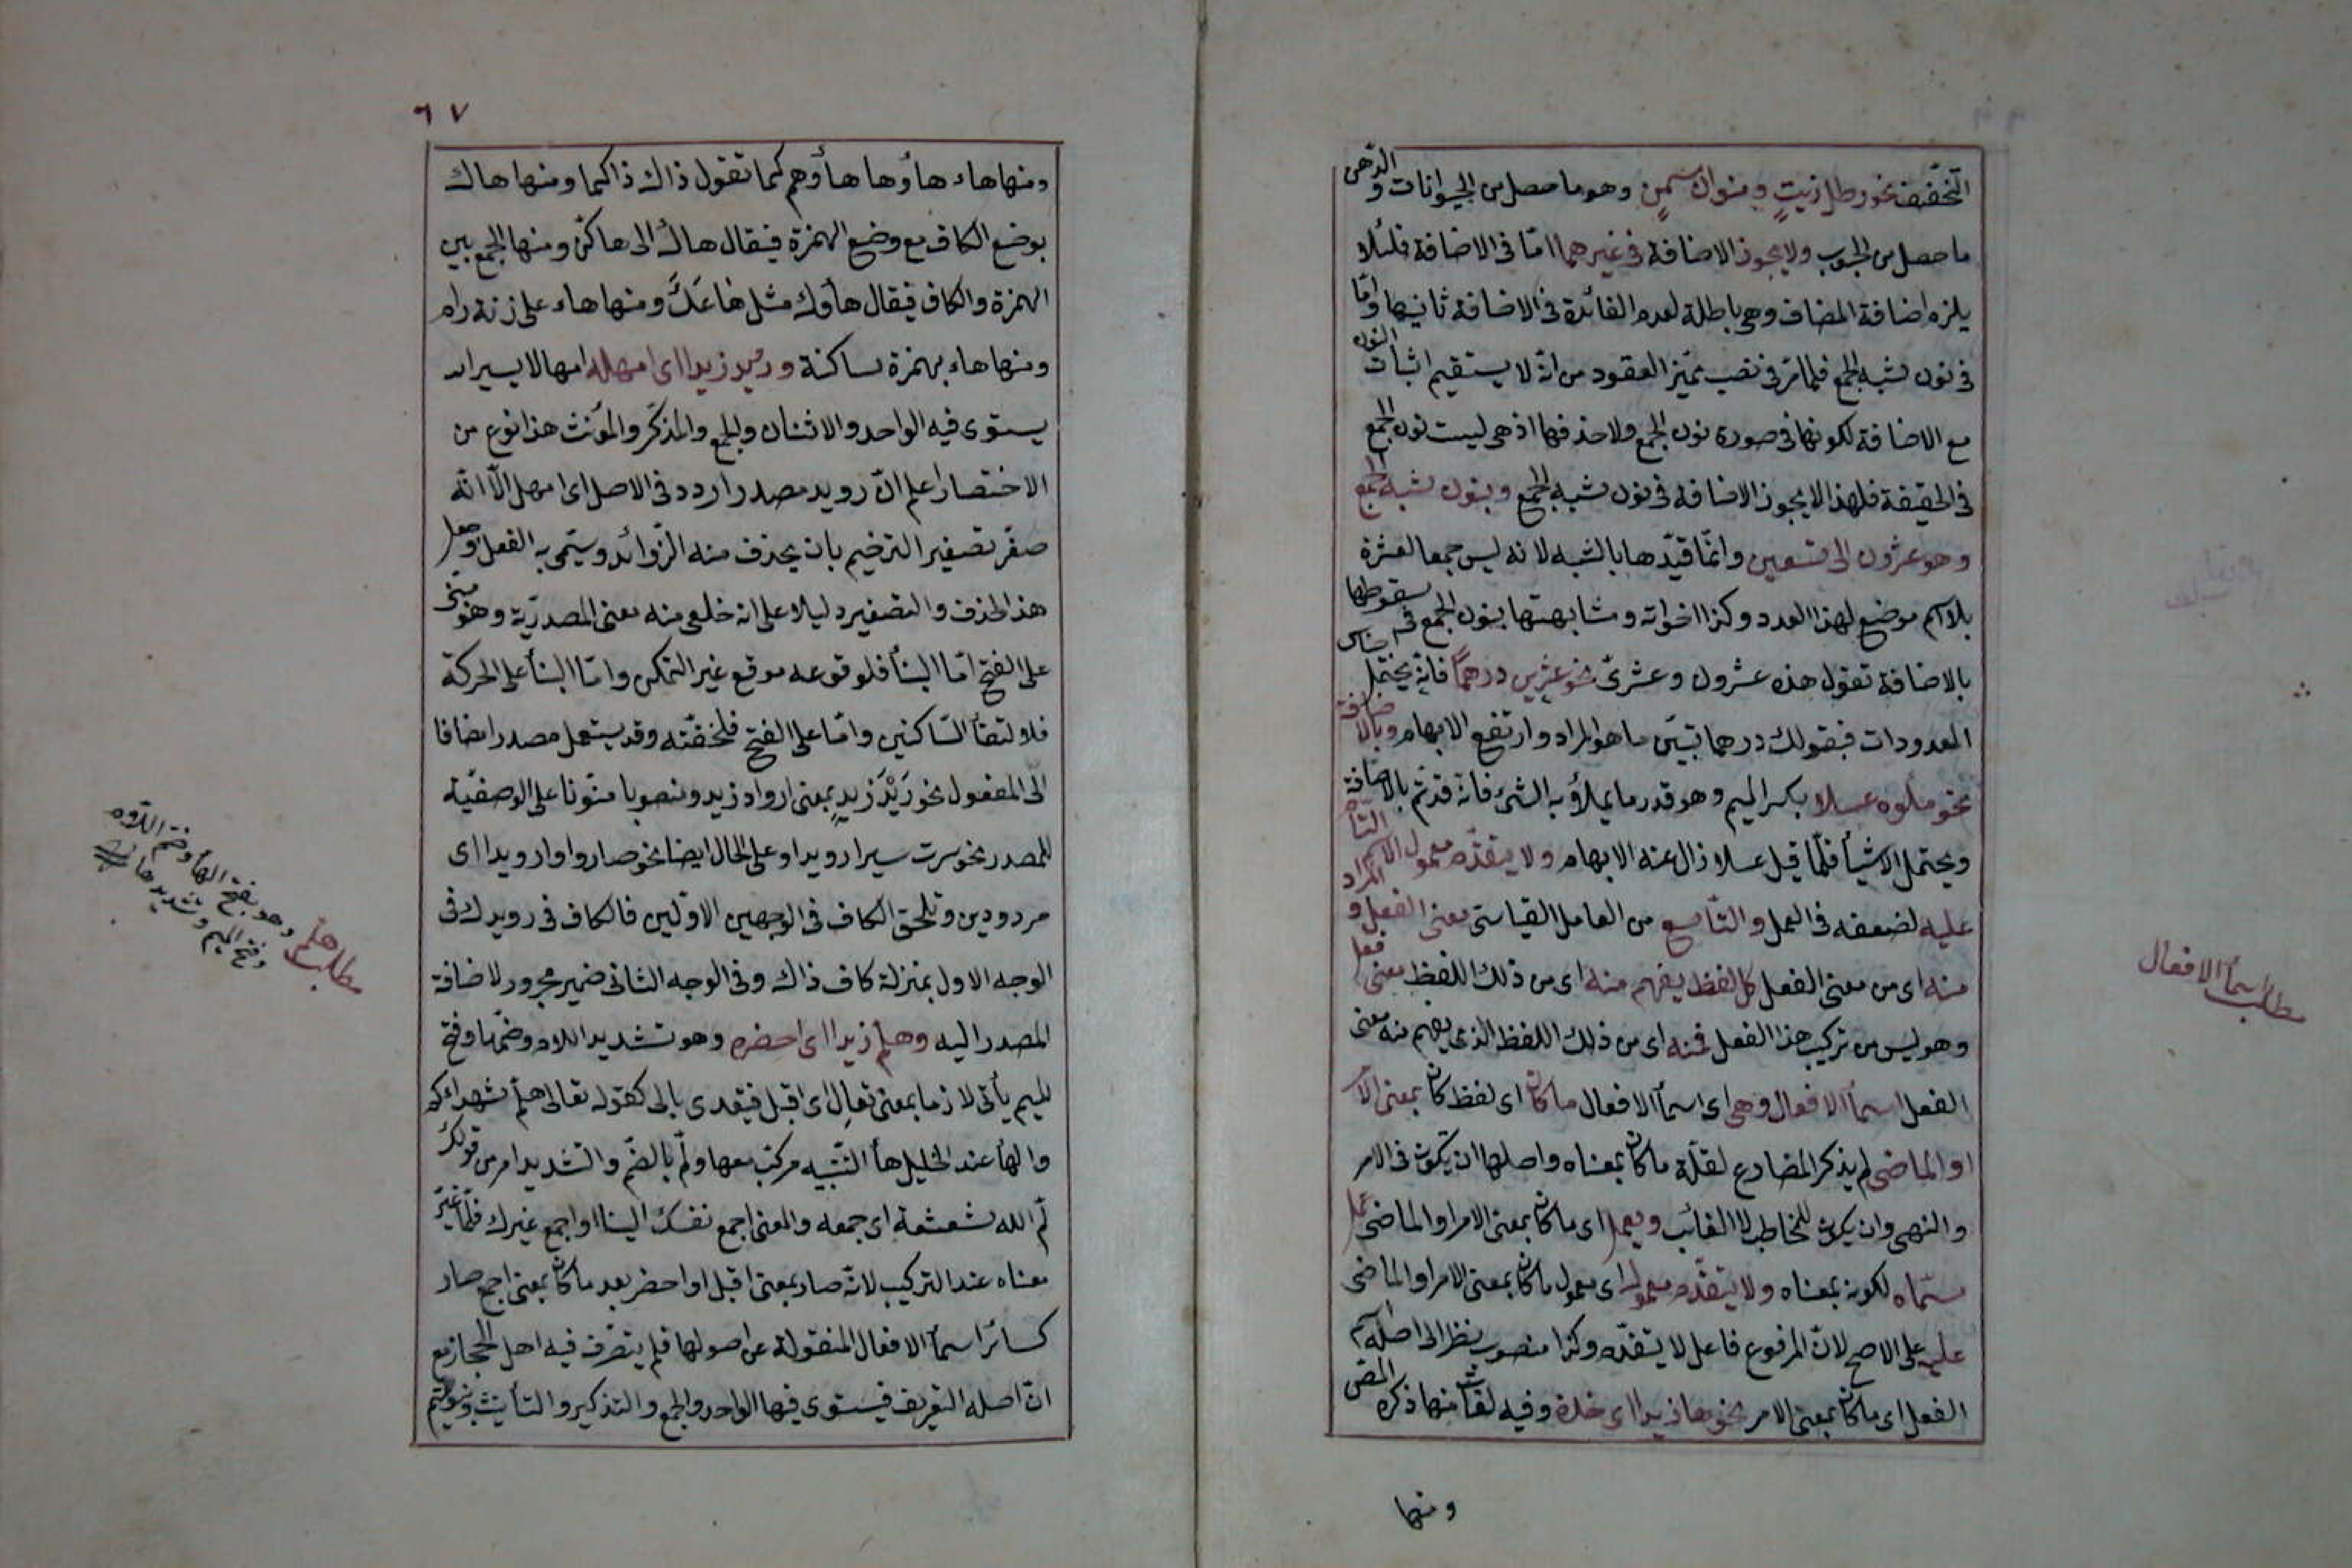 التخفيف نحو رطل زيتٍ ومنوان سمنٍ وهو ما حصل من الحيوانات والدهن
ما حصل من الحبوب ولا يجوز الاضافة فى غيرهما امّا فى الاضافة فلئلا
يلزم اضافة المضاف وهى باطلة لعدم الفائدة فى الاضافة ثانيها وامّا
فى نون شبه الجمع فلما مرّ فى نصب مميّز العقود من انّه لا يستقيم اثبات النون
مع الاضافة لكونها فى صورة نون الجمع ولا حذفها اذ هى ليست نون الجمع
فى الحقيقة فلهذا لا يجوز الاضافة فى نون شبه الجمع وبنون شبه الجمع
وهو عشرون الى تسعين وانّما قيّدها بالشبه لانه ليس جمعا لعشرة
بلا اسم موضع لهذا العدد وكذا اخواته ومشابهتها بنون الجمع فى سقوطها
بالاضافة تقول هذه عشرون وعشرىّ نحو عشرين درهمًا فانّه يحتمل
المعدودات فبقولك درهما تبيّن ما هو المراد وارتفع الابهام وبالاضافة
نحو ملؤه عسلا بكسر الميم وهو قدر ما يملاؤ به الشئ فانه قد تمّ بالاضافة
ويحتمل الاشيأ فلمّا قيل عسلا زال عنه الابهام ولا يتقدّم معمول الاسم التامّ
عليه لضعفه فى العمل والتّاسع من العامل القياسى معنى الفعل والمراد
منه اى من معنى الفعل كل لفظ يفهم منه اى من ذلك اللفظ معنى فعل
وهو ليس من تركيب هذا الفعل فمنه اى من ذلك اللفظ الذى يفهم منه معنى
الفعل اسمأ الافعال وهى اى اسمأ الافعال ما كان اى لفظ كان بمعنى الامر
او الماضى لم يذكر المضارع لقلّة ما كان بمعناه واصلها ان يكون فى الامر
والنهى وان يكون للمخاطب لا الغائب ويعمل اى ما كان بمعنى الامر او الماضى عمل
مسمّاه لكونه بمعناه ولا يتقدّم معموله اى معمول ما كان بمعنى الامر او الماضى
عليه على الاصح لانّ المرفوع فاعل لا يتقدّم وكذا منصوب نظرا الى اصله
الفعل اى ما كان بمعنى الامر نحو ها زيدا اى خذه وفيه لغات منها ذكره المص
ومنها
مطلب اسمأ الافعال
٦٧
ومنها هاء هاؤما هاؤم كما تقول ذاك ذاكما ومنها هاك
بوضع الكاف مع وضع الهمزة فيقال هاك الى هاكنّ ومنها الجمع بين
الهمزة والكاف فيقال هأوك مثل هاعَكَ ومنها هاء على زنة رام
ومنها هاء بهمزة ساكنة ورويد زيدا اى امهله امهالا يسيرا
يستوى فيه الواحد والاثنان والجمع والمذكّر والمؤنث هذا نوع من
الاختصار اعلم انّ رويد مصدر ارود فى الاصل اى امهل الّا انّه
صغّر تصغير الترخيم بان يحذف منه الزّوائد وسمّى به الفعل وجعل
هذا الحذف والتصغير دليلا على انه خلع منه معنى المصدريّة وهو مبنى
على الفتح امّا البنأ فلوقوعه موقع غير المتمكن وامّا البنأ على الحركة
فلالتقأ السّاكنين وامّا على الفتح فلخفّته وقد يستعمل مصدرا مضافا
الى المفعول نحو رَيْدَ زيدٍ بمعنى ارواد زيد ومنصوبا منوّنا على الوصفيّة
للمصدر نحو سرت سيرا رويدا وعلى الحال ايضا نحو صاروا وا رويدا اى
مرودين وتلحق الكاف فى الوجهين الاوّلين فالكاف فى رويدك فى
الوجه الاول بمنزلة كاف ذاك وفى الوجه الثانى ضمير مجرور لاضافة
المصدر اليه وهلمّ زيدا اى احضره وهو تشديد اللام وضمّها وفتح
الميم يأتى لازما بمعنى تعال اى اقبل فيتعدى بالى كقوله تعالى هلمّ شهداءكم
والهأ عند الخليل هأ التّنبيه مركب معها ولمّ بالضمّ والتشديد امر من قولك
لمّ الله شعثه اى جمعه والمعنى اجمع نفسك الينا او اجمع غيرك فلمّا غيّر
معناه عند التركيب لانّه صار بمعنى اقبل او احضر بعد ما كان بمعنى اجمع صار
كسائر اسمأ الافعال المنقولة عن اصولها فلم يتصرّف فيه اهل الحجاز مع
انّ اصله التعريف فيستوى فيها الواحد والجمع والتذكير والتأنيث
مطلب هلمّ وهو بفتح الهأ وضمّ اللام
وفتح الميم وتشديدها